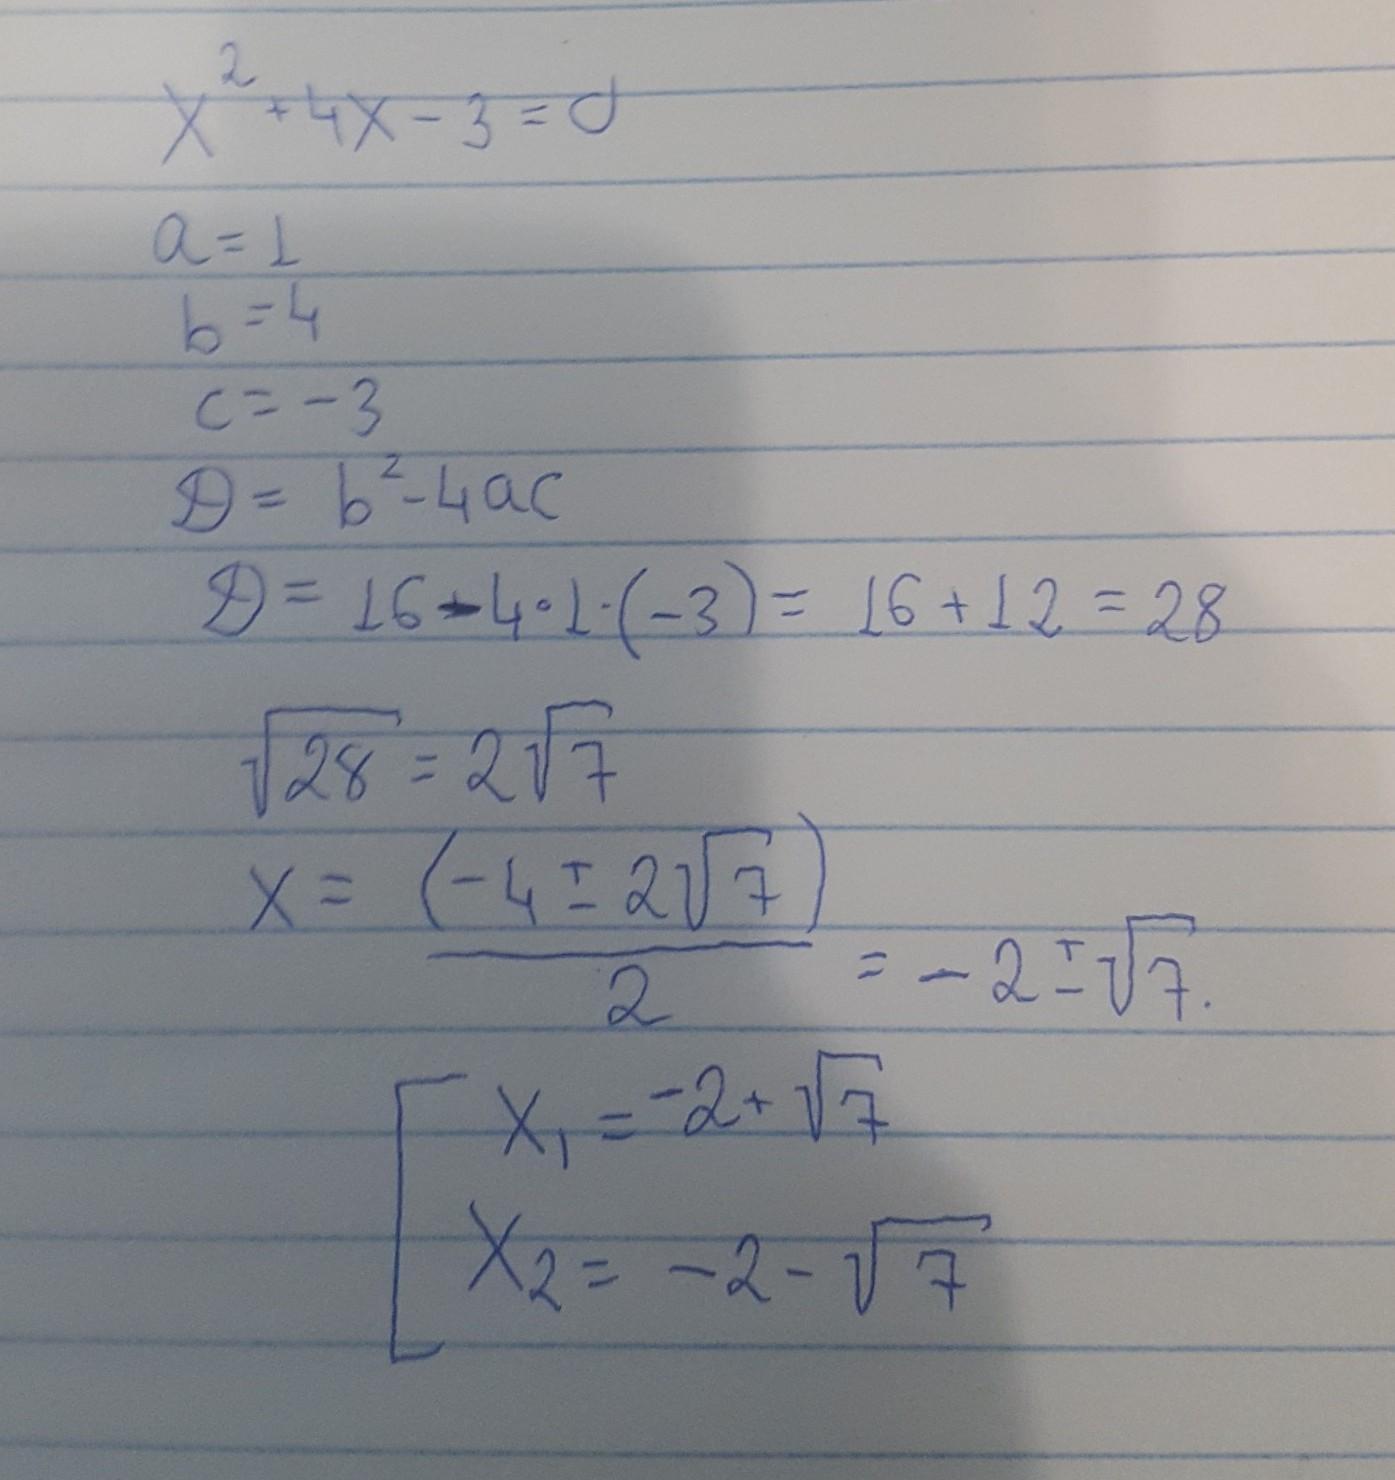 x² + 4x - 3 = 0
a = 1
b = 4
c = -3
D = b² - 4ac
D = 16 - 4·1·(-3) = 16 + 12 = 28
√28 = 2√7
x = (-4 ± 2√7)/2 = -2 ± √7.
x₁ = -2 + √7
x₂ = -2 - √7